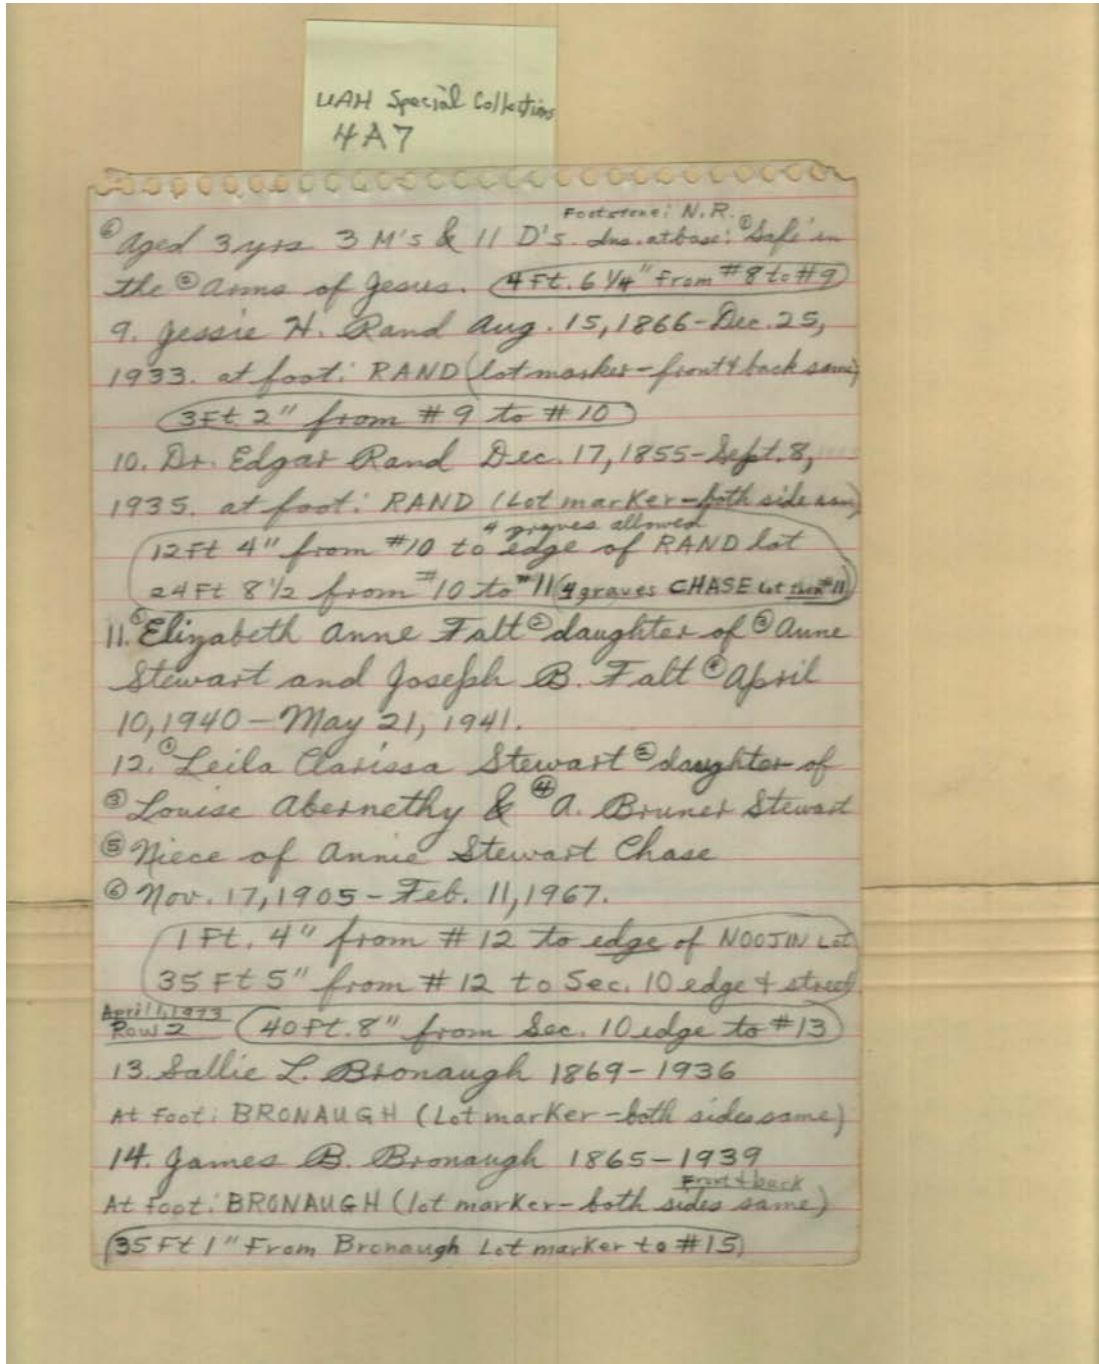 UAH Special Collections
4A7
Footstone: N.R.
⑥ Aged 3 yrs 3 M's & 11 D's. Ins. at base: ① Safe in
the ② arms of Jesus. 4 Ft. 6 1/4" from #8 to #9
9. Jessie H. Rand Aug. 15, 1866 - Dec. 25,
1933. at foot: RAND (lot marker - front & back same)
3 Ft 2" from #9 to #10
10. Dr. Edgar Rand Dec. 17, 1855 - Sept. 8,
1935. at foot: RAND (Lot marker - both side same)
4 graves allowed
12 Ft 4" from #10 to edge of RAND lot
24 Ft 8 1/2 from #10 to #11 (4 graves CHASE Lot then #11)
11. ① Elizabeth Anne Falt ② daughter of ③ Anne
Stewart and Joseph B. Falt ④ April
10, 1940 - May 21, 1941.
12. ① Leila Clarissa Stewart ② daughter of
③ Louise Abernethy & ④ A. Bruner Stewart
⑤ Niece of Annie Stewart Chase
⑥ Nov. 17, 1905 - Feb. 11, 1967.
1 Ft. 4" from #12 to edge of NOOJIN Lot
35 Ft 5" from #12 to Sec. 10 edge & street
April 1, 1973
Row 2 40 Ft. 8" from Sec. 10 edge to #13
13. Sallie L. Bronaugh 1869 - 1936
At Foot: BRONAUGH (Lot marker - both sides same)
14. James B. Bronaugh 1865 - 1939
Front & back
At Foot: BRONAUGH (lot marker - both sides same)
35 Ft 1" From Bronaugh Lot marker to #15